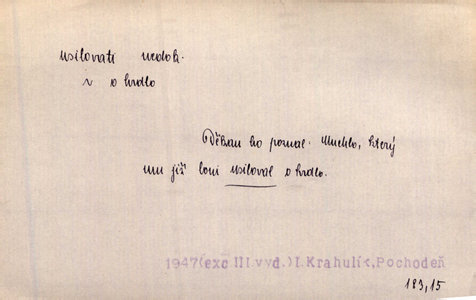 usilovati nedok.
v o hrdlo
Děkan ho poznal. Muchlo, který
mu již loni usiloval o hrdlo.
1947(exc III.vyd.)I.Krahulík,Pochodeň
183,15